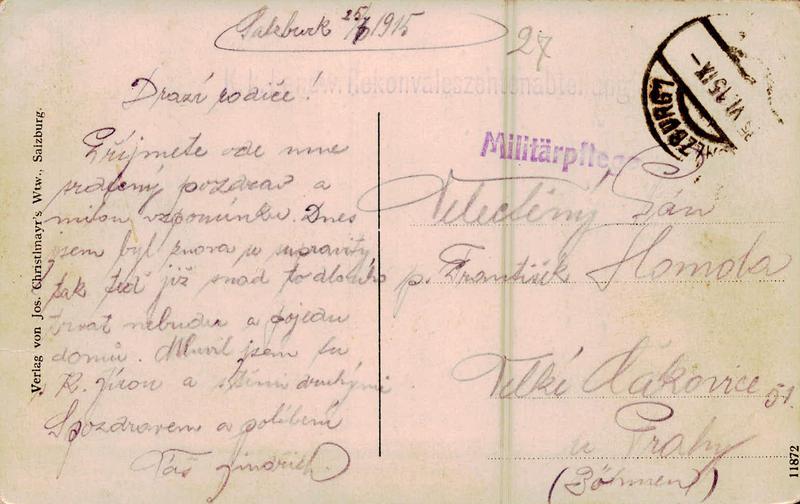 Salzburk 25/6 1915
27
Drazí rodiče!
Příjmete ode mne
srdečný pozdrav a
milou vzpomínku. Dnes
jsem byl znova u
tak teď již snad to dlouho
trvat nebude a pojedu
domů. Mluvil jsem tu
a
S pozdravem a políbení
Váš Jindřich.
Verlag von Jos. Christlmayr's Wtw., Salzburg.
K. k. Rekonvaleszentenabteilung
Militärpflege
SALZBURG 1
25 VI 15 IX-
Velectěný Pán
p. František Homola
Velké Čakovice 51
u Prahy
(Böhmen)
11872